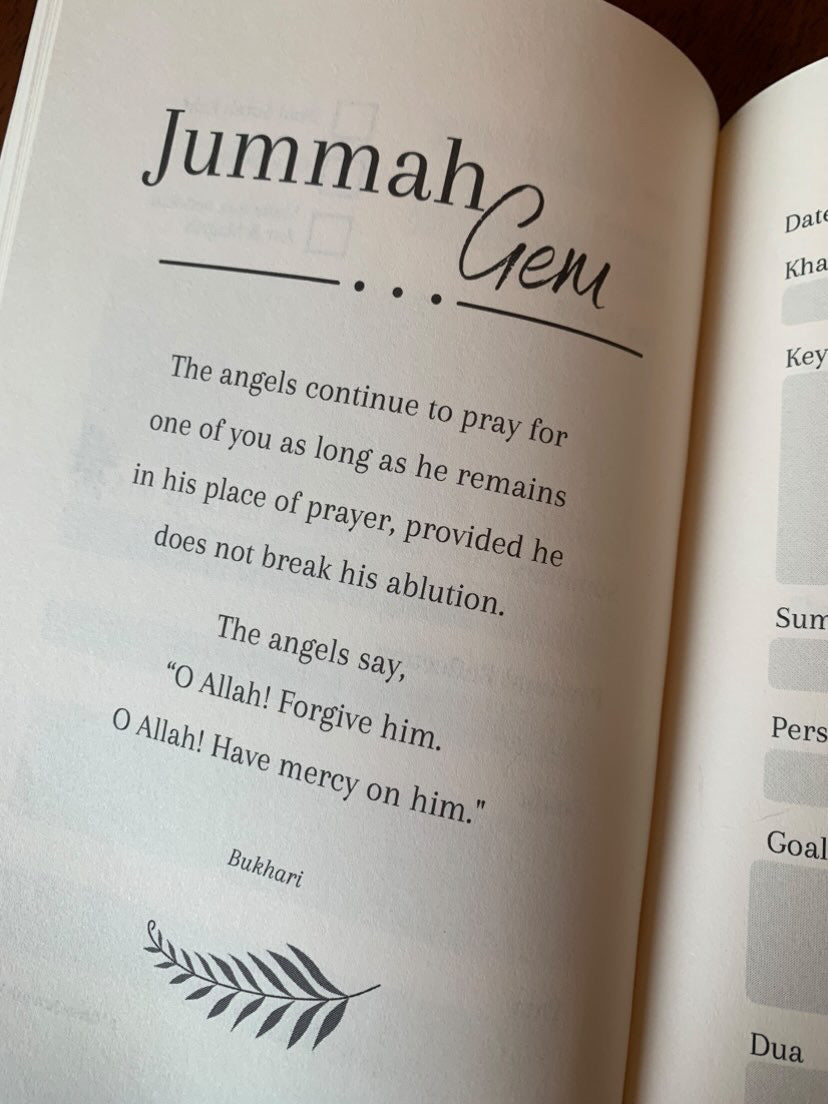 Jummah
Gem
The angels continue to pray for
one of you as long as he remains
in his place of prayer, provided he
does not break his ablution.
The angels say,
“O Allah! Forgive him.
O Allah! Have mercy on him."
Bukhari
Date
Kha
Key
Sum
Pers
Goal
Dua